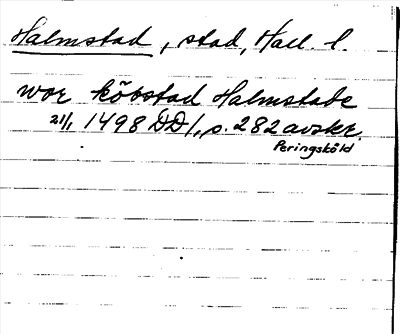 Halmstad, stad, Hall. l.
wor köbstad Halmstade
21/1 1498 DD1, s. 282 avskr.
Peringsköld